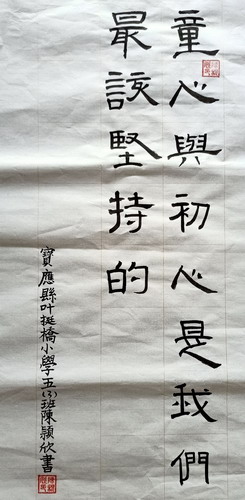 童心與初心是我們
最該堅持的
寶應縣叶挺橋小學五(3)班陳穎欣書